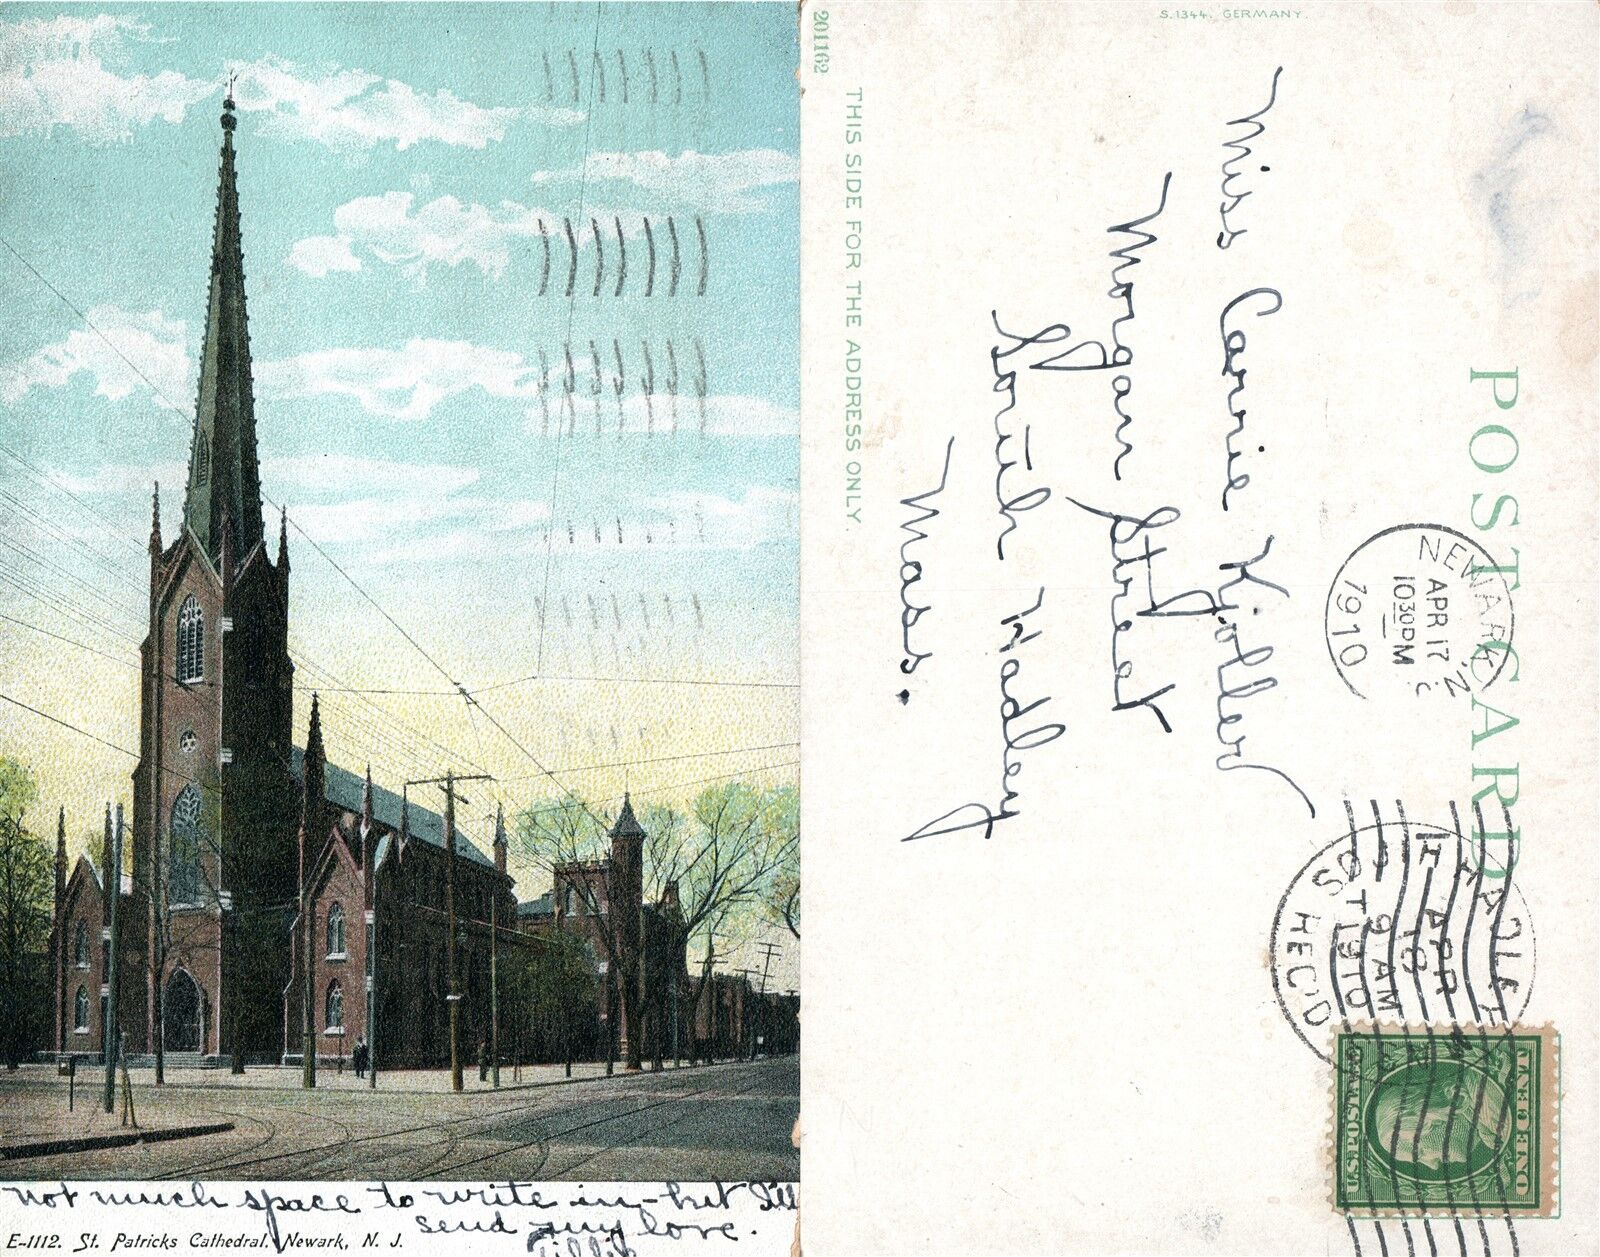 not much space to write in - but I'll
send my love.
Tillie
E-1112. St. Patricks Cathedral, Newark, N. J.
201162
S.1344. GERMANY.
THIS SIDE FOR THE ADDRESS ONLY.
POST CARD
Miss Carrie Kjoller
Morgan Street
South Hadley
Mass.
NEWARK, N.J.
APR 17
10 30 PM
1910
HADLEY
APR
18
9 AM
1910
REC'D
U.S. POSTAGE
ONE CENT